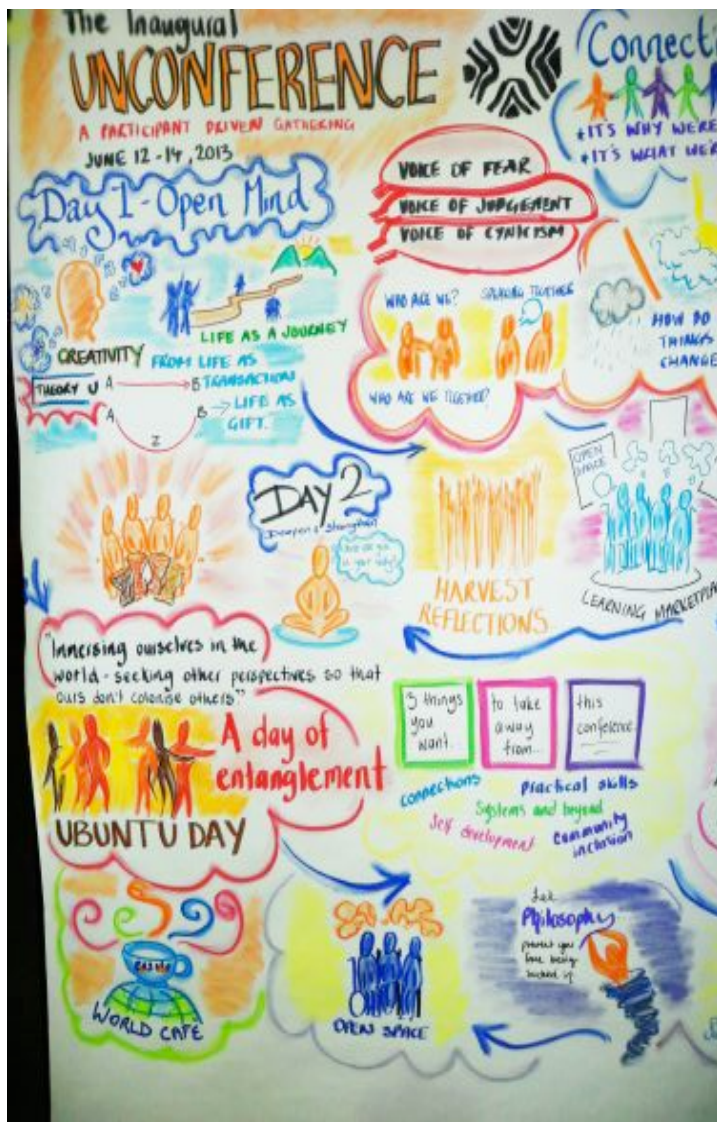 The Inaugural
UNCONFERENCE
A PARTICIPANT DRIVEN GATHERING
JUNE 12-14, 2013
Connecti
+ IT'S WHY WE'RE
+ IT'S WHAT WE'R
Day 1 - Open Mind
VOICE OF FEAR
VOICE OF JUDGEMENT
VOICE OF CYNICISM
LIFE AS A JOURNEY
CREATIVITY
FROM LIFE AS
TRANSACTION
LIFE AS
GIFT.
THEORY U
A
B
A
B
Z
WHO ARE WE?
SPEAKING TOGETHER
WHO ARE WE TOGETHER?
HOW DO
THINGS
CHANGE
DAY 2
Deepen & Strengthen
HARVEST
REFLECTIONS
OPEN
SPACE
LEARNING MARKETPLA
"Immersing ourselves in the
world - seeking other perspectives so that
ours don't colonise others."
A day of
entanglement
UBUNTU DAY
3 things
you
want
to take
away
from...
this
conference.
connections
Practical skills
Systems and beyond
Self development
Community
inclusion
WORLD CAFE
OPEN SPACE
Philosophy
prevent you
from being